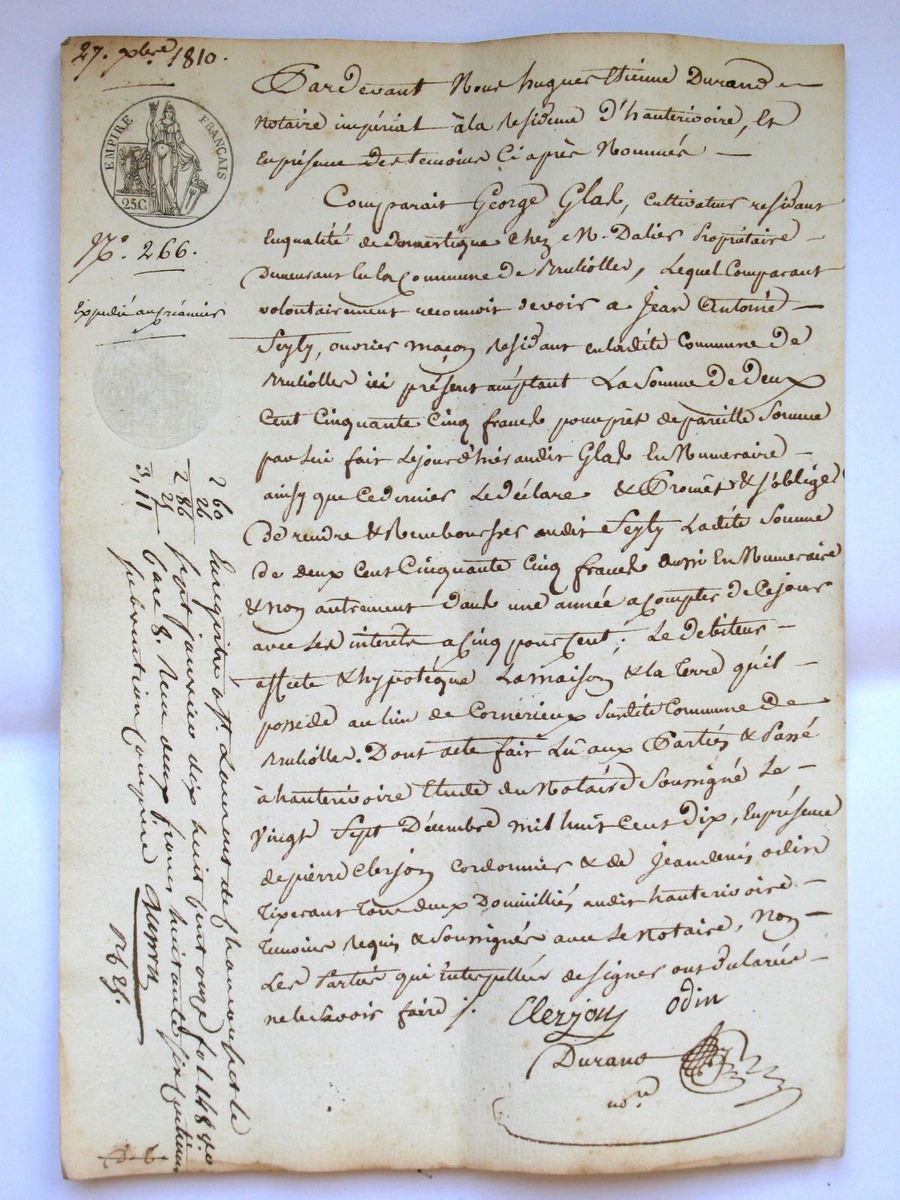 27. xbre 1810.
EMPIRE FRANÇAIS
25.C
N.o 266.
Expédié au créancier
Pardevant Nous hugues Etienne Durand
Notaire impérial à la residence d'hauterivoire, Et
En présence des temoins Ci après Nommés
Comparait George Glas, Cultivateur residant
Enqualité de domestique chez Mr Dalier Propriétaire
Demeurant En la Commune de Brulioles, Lequel Comparant
volontairement reconnoit devoir a Jean Antoine
Seyty, ouvrier maçon residant en ladite Commune de
Brulioles ici présent acceptant La Somme de deux
Cent Cinquante Cinq francs pour prêt de pareille Somme
par lui fait Lejour d'hier audit Glas En Numeraire
ainsy que Ce dernier Le déclare & Promet & s'oblige
De rendre & Rembourser audit Seyty Ladite Somme
de deux Cent Cinquante Cinq francs aussi En Numeraire
& Non autrement dans une année a Compter de Cejour
avec Les interets a Cinq pour Cent; Le debiteur
affecte & hypotéque La maison & la terre qu'il
possede au lieu de Cornérieux Susdite Commune de
Brulioles. Dont acte fait Lû aux Parties & Passé
à hauterivoire Etude du Notaire Soussigné Le
Vingt Sept Décembre mil huit Cent Dix, En présence
de pierre Clerjon Cordonnier & de Jean denis odin
Tixerant Tous deux Domiciliés audit hauterivoire
Temoins Requis & Soussignés avec Le Notaire, Non
Les Parties qui interpellées de signer ont declarées
ne le Savoir faire
Clerjon Odin
Durand
nore
2 60
26
2 86
25
3,11
Enregistré a St Laurent de chamousset le
sept janvier dix huit cent onze fol 148
Case 8. Reçu deux francs huitante six centimes
subvention Comprise